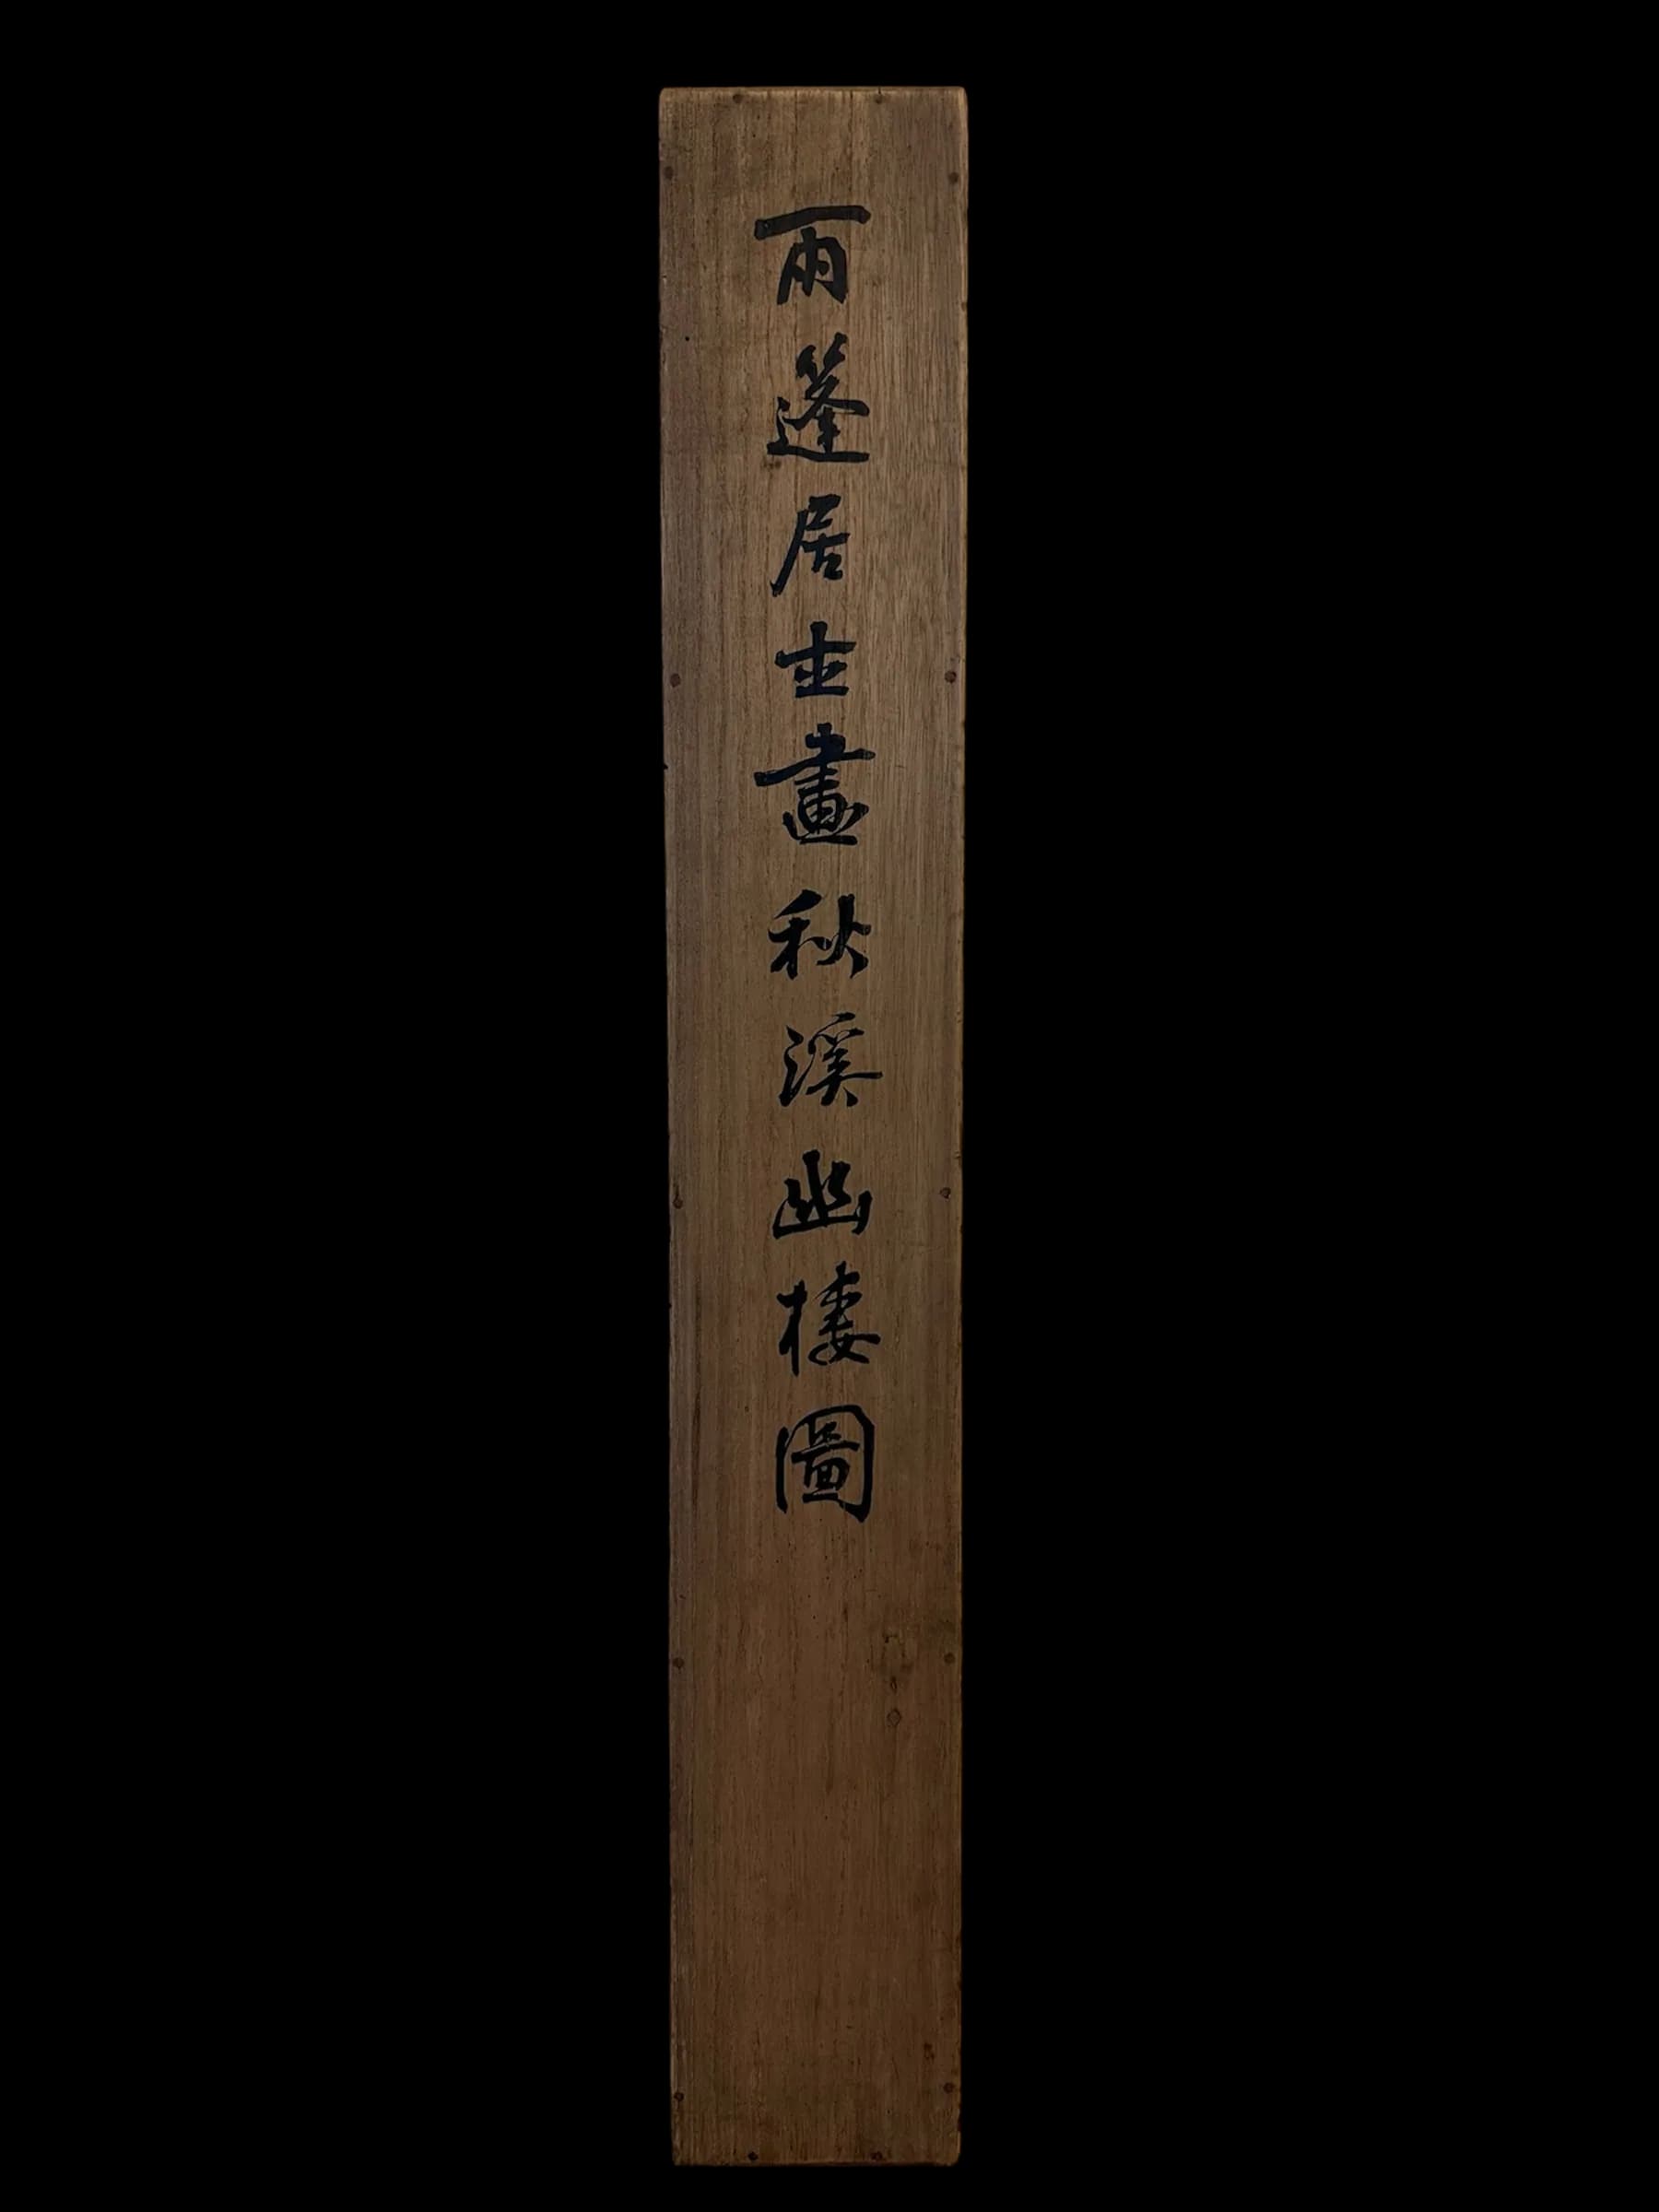 雨篷居士畫秋溪幽棲圖